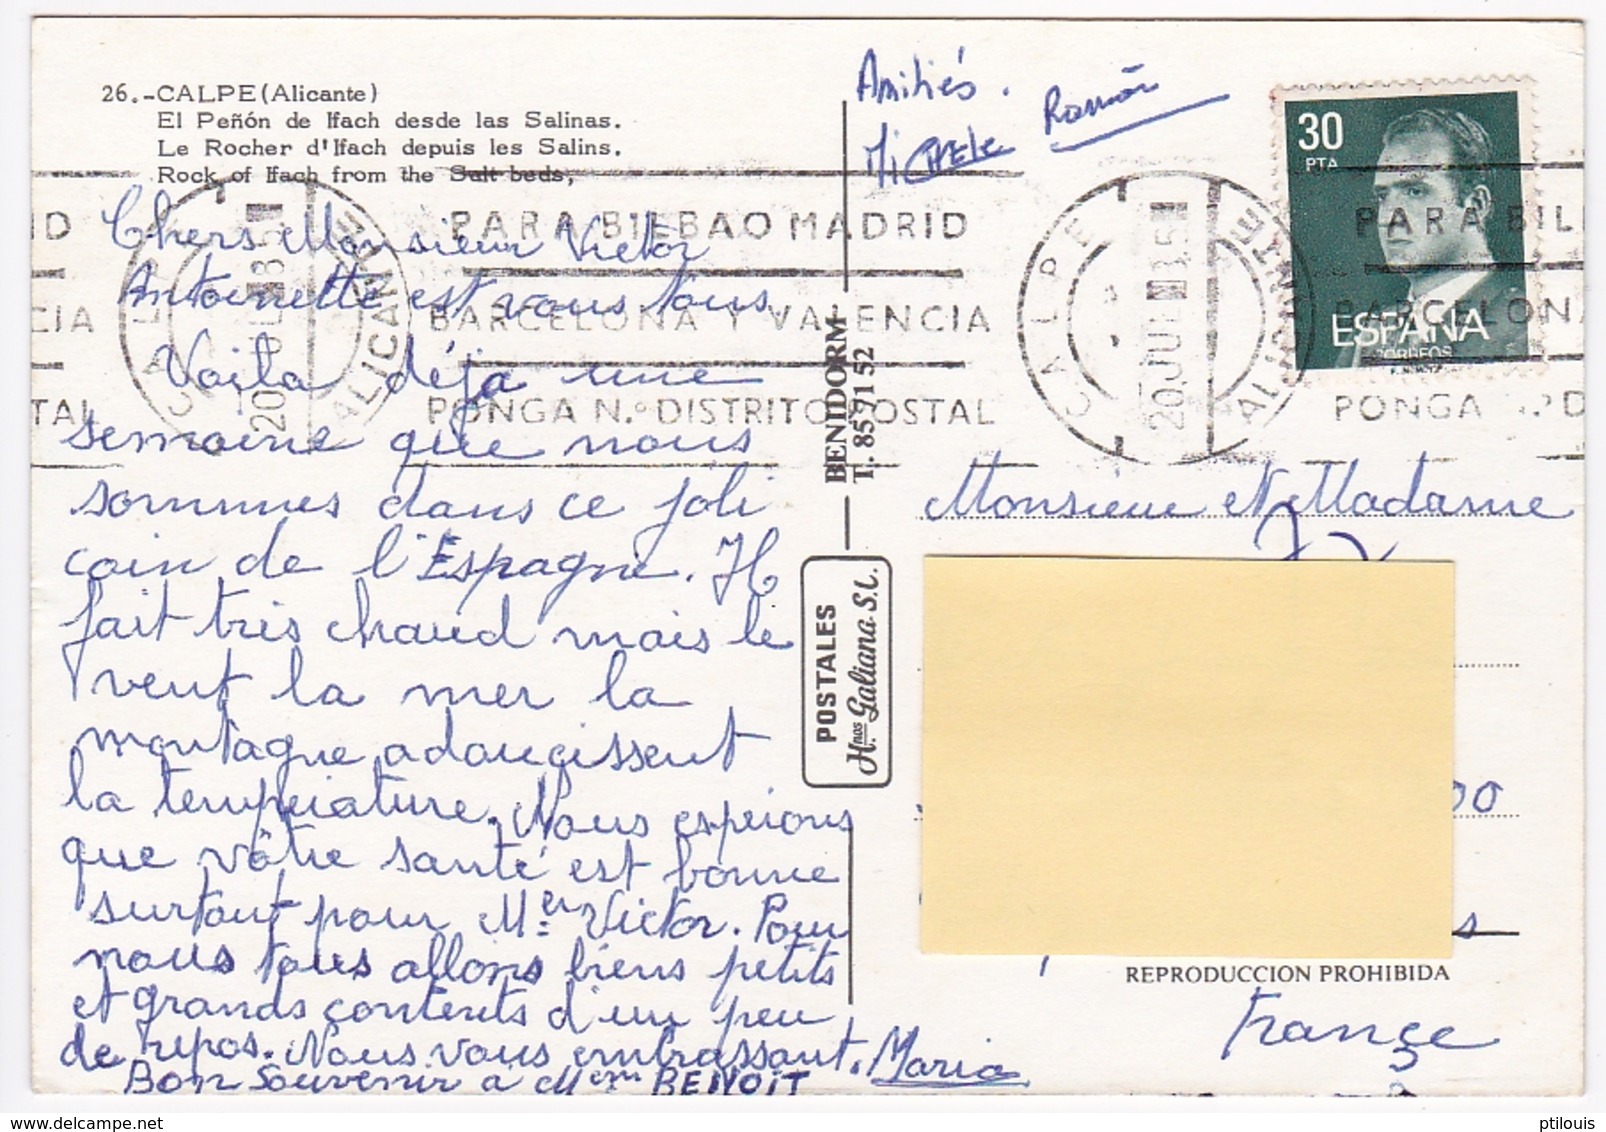 26.-CALPE (Alicante)
El Peñón de Ifach desde las Salinas.
Le Rocher d'Ifach depuis les Salins.
Rock of Ifach from the Salt beds,
Chers Monsieur Victor
Antoinette est vous tous
Voila déja une
semaine que nous
sommes dans ce joli
coin de l'Espagne. Il
fait très chaud mais le
vent la mer la
montagne adoucissent
la température. Nous esperons
que vôtre santé est bonne
surtout pour Mer Victor. Pour
nous tous allons biens petits
et grands contents d'un peu
de repos. Nous vous embrassant. Maria
Bon Souvenir a BENOIT
Amitiés.
Michele
Ramón
30
PTA
ESPAÑA
CORREOS
CALPE
20 JUL
ALICANTE
PARA BILBAO MADRID
BARCELONA Y VALENCIA
PONGA N.º DISTRITO POSTAL
CALPE
20 JUL
ALICANTE
PARA BIL
BARCELONA
PONGA N.º D
ID
CIA
TAL
BENIDORM
T. 85 71 52
POSTALES
Hnos Galiana S.L.
Monsieur et Madame
00
s
REPRODUCCION PROHIBIDA
France
ptilouis